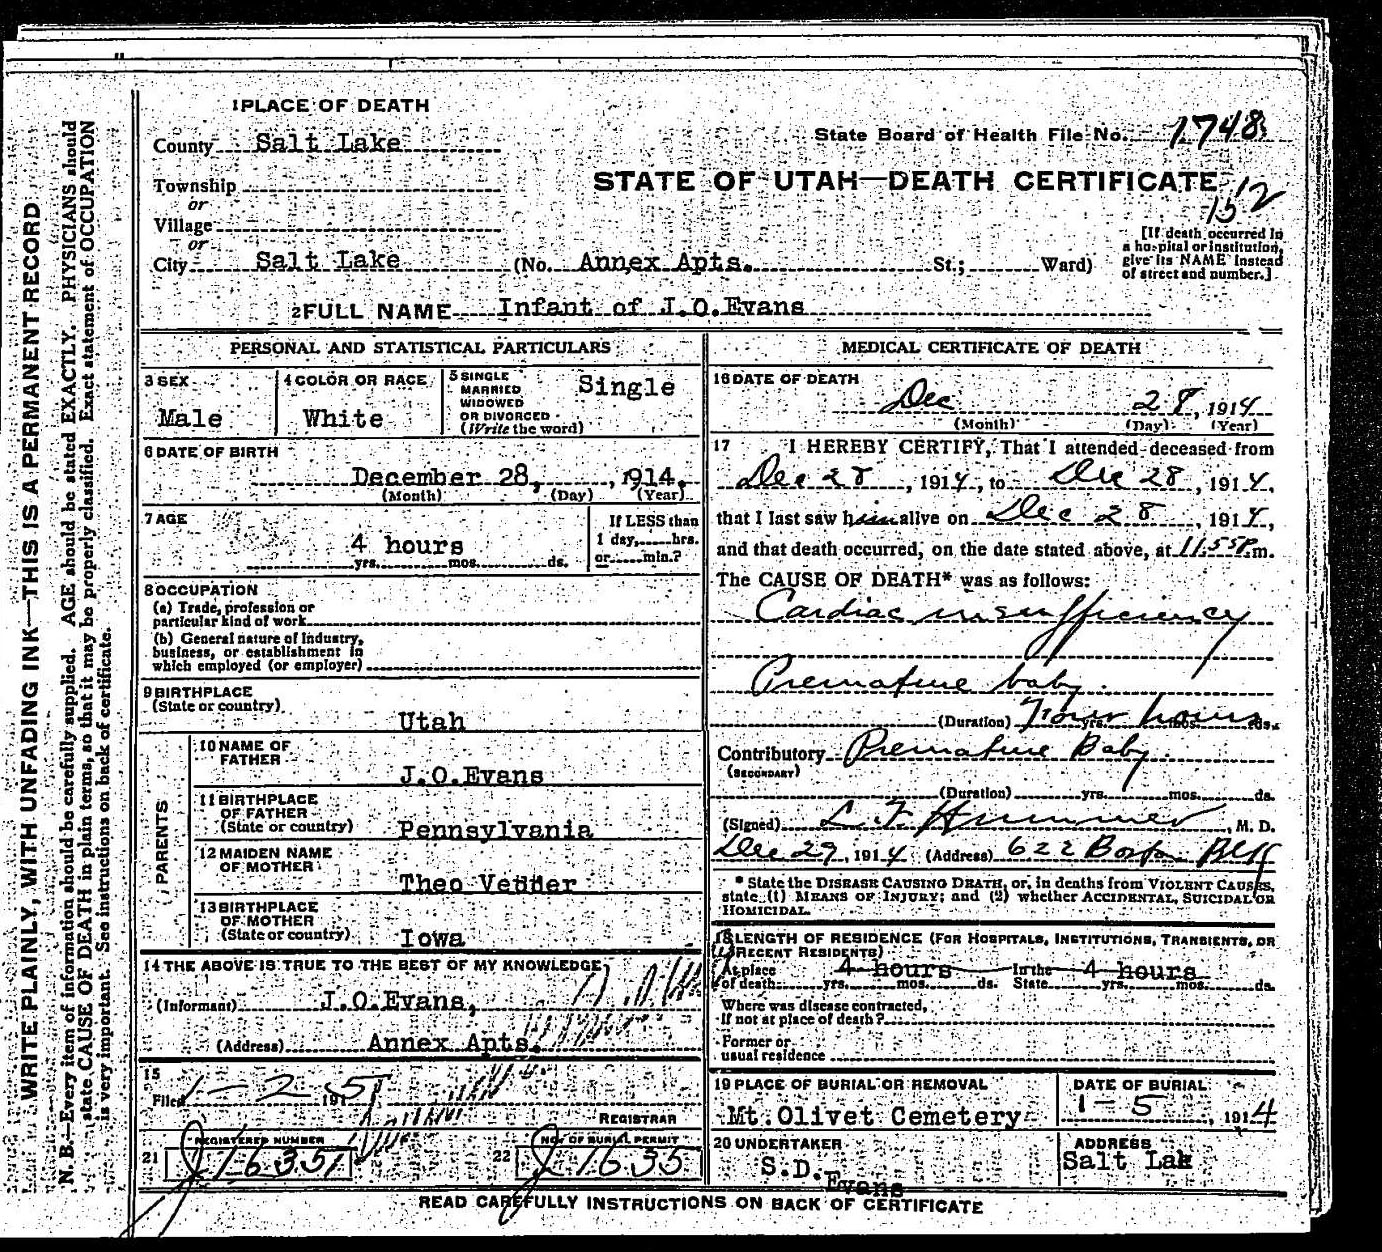 WRITE PLAINLY, WITH UNFADING INK—THIS IS A PERMANENT RECORD
N. B.—Every item of information should be carefully supplied. AGE should be stated EXACTLY. PHYSICIANS should
state CAUSE OF DEATH in plain terms, so that it may be properly classified. Exact statement of OCCUPATION
is very important. See instructions on back of certificate.
1 PLACE OF DEATH
County Salt Lake
State Board of Health File No. 1748
Township
or
STATE OF UTAH—DEATH CERTIFICATE
Village
or
[If death occurred in
a hospital or institution,
give its NAME instead
of street and number.]
City Salt Lake (No. Annex Apts. St.; Ward)
2 FULL NAME Infant of J.O.Evans
PERSONAL AND STATISTICAL PARTICULARS
3 SEX
Male
4 COLOR OR RACE
White
5 SINGLE
MARRIED
WIDOWED
OR DIVORCED
(Write the word)
Single
6 DATE OF BIRTH
December 28, , 1914.
(Month) (Day) (Year)
7 AGE
4 hours
yrs. mos. ds.
If LESS than
1 day, hrs.
or min.?
8 OCCUPATION
(a) Trade, profession or
particular kind of work
(b) General nature of Industry,
business, or establishment in
which employed (or employer)
9 BIRTHPLACE
(State or country)
Utah
PARENTS
10 NAME OF
FATHER
J.O.Evans
11 BIRTHPLACE
OF FATHER
(State or country) Pennsylvania
12 MAIDEN NAME
OF MOTHER
Theo
13 BIRTHPLACE
OF MOTHER
(State or country) Iowa
14 THE ABOVE IS TRUE TO THE BEST OF MY KNOWLEDGE
(Informant) J.O.Evans,
(Address) Annex Apts.
15
Filed 1-2 1915
REGISTRAR
21 REGISTERED NUMBER
J1635
22 NO. OF BURIAL PERMIT
J1635
MEDICAL CERTIFICATE OF DEATH
16 DATE OF DEATH
Dec 28, 1914
(Month) (Day) (Year)
17 I HEREBY CERTIFY, That I attended deceased from
Dec 28, 1914, to Dec 28, 1914,
that I last saw him alive on Dec 28, 1914,
and that death occurred, on the date stated above, at 11.55P.m.
The CAUSE OF DEATH* was as follows:
Cardiac insufficiency
Premature baby.
(Duration) Four yrs. hours mos. ds.
Contributory Premature Baby
(SECONDARY)
(Duration) yrs. mos. ds.
(Signed) L. F. Hummer, M. D.
Dec 29, 1914 (Address) 622 Boston Bldg
* State the DISEASE CAUSING DEATH, or, in deaths from VIOLENT CAUSES,
state (1) MEANS OF INJURY; and (2) whether ACCIDENTAL, SUICIDAL OR
HOMICIDAL.
18 LENGTH OF RESIDENCE (FOR HOSPITALS, INSTITUTIONS, TRANSIENTS, OR
RECENT RESIDENTS)
At place 4 hours In the 4 hours
of death yrs. mos. ds. State yrs. mos. ds.
Where was disease contracted,
If not at place of death?
Former or
usual residence
19 PLACE OF BURIAL OR REMOVAL
Mt. Olivet Cemetery
DATE OF BURIAL
1-5, 1914
20 UNDERTAKER
S.D. Evans
ADDRESS
Salt Lak
READ CAREFULLY INSTRUCTIONS ON BACK OF CERTIFICATE